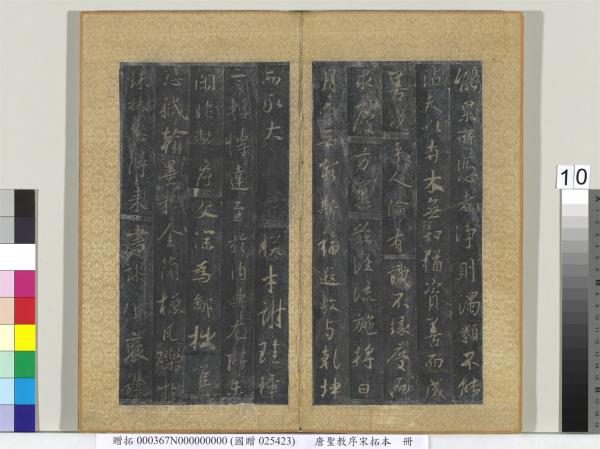 能累所憑者淨則濁類不能
沾夫以卉木無知猶資善而成
善況乎人倫有識不緣慶而
求慶方冀茲經流施將日
月而無窮斯福遐敷与乾坤
而永大 朕才謝珪璋
言慚博達至於內典尤所未
閑昨製序文深為鄙拙唯
恐穢翰墨於金簡標瓦礫於
珠林忽得來書謬承褒讚
10
贈拓 000367N000000000 (國贈 025423) 唐聖教序宋拓本 冊